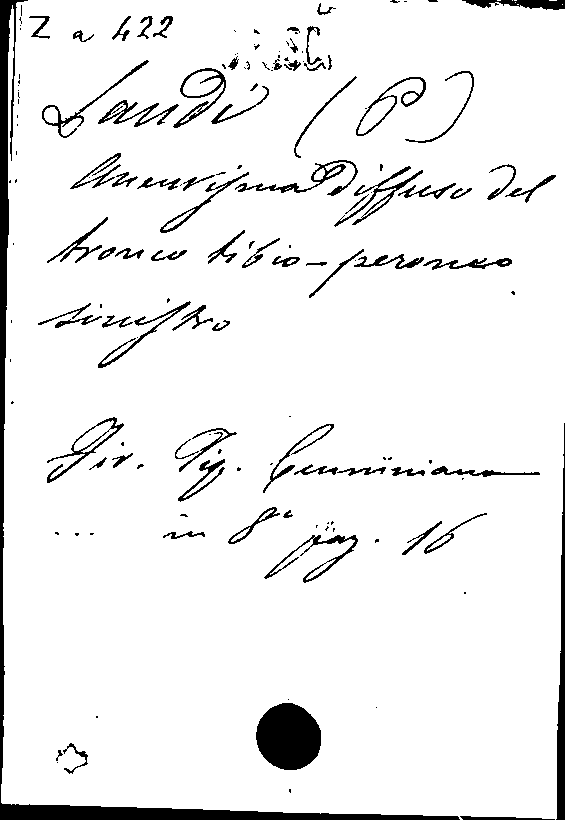 Z a 422
Landi (P)
Aneurisma diffuso del
tronco tibio-peroneo
sinistro
Fir. Tip. Cenniniana
... in 8° pag. 16